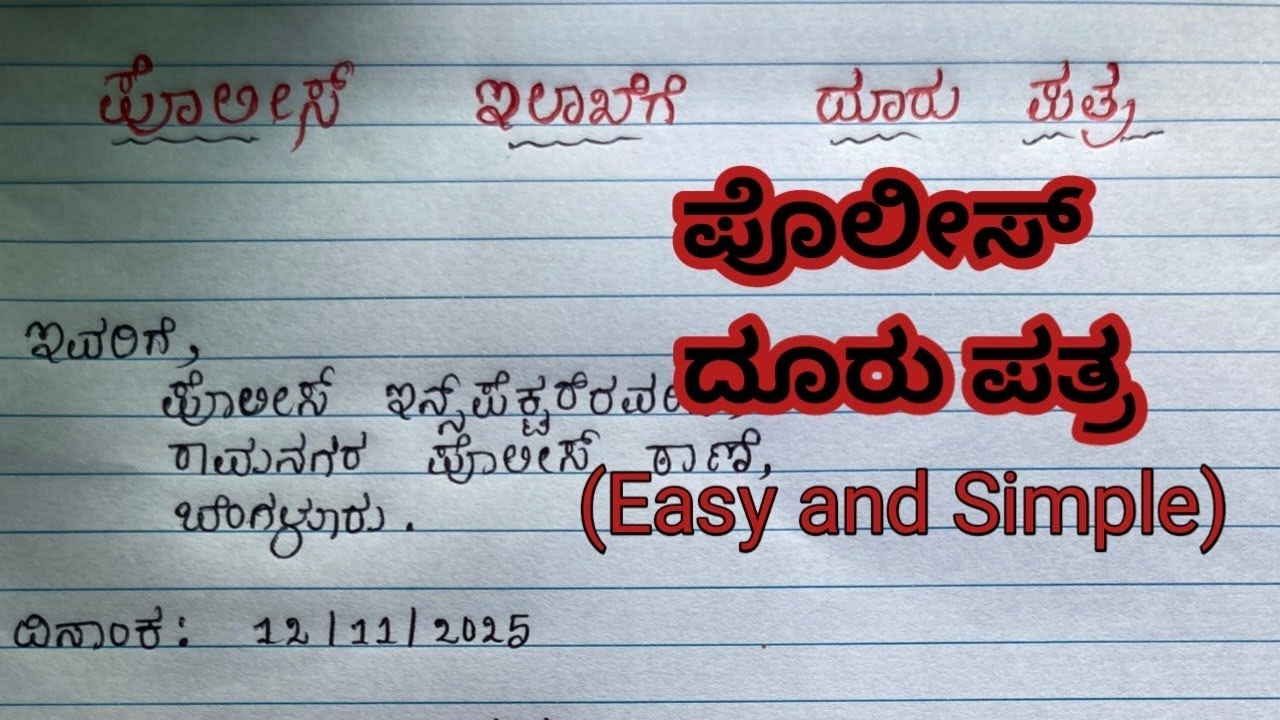 ಪೊಲೀಸ್ ಇಲಾಖೆಗೆ ದೂರು ಪತ್ರ
ಪೊಲೀಸ್
ದೂರು ಪತ್ರ
(Easy and Simple)
ಇವರಿಗೆ,
ಪೊಲೀಸ್
ರಾಮನಗರ ಪೊಲೀಸ್ ಠಾಣೆ,
ಬೆಂಗಳೂರು.
ದಿನಾಂಕ: 12/11/2025